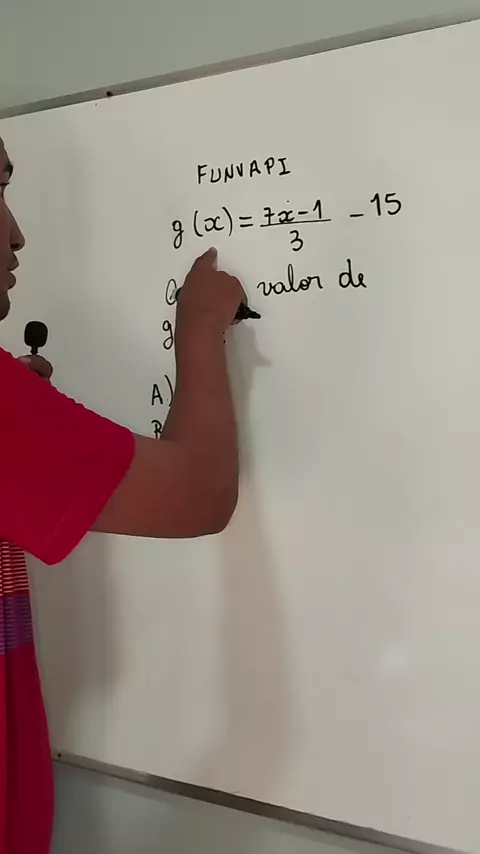 FUNVAPI
g(x) = 7x-1/3 - 15
valor de
g
A)